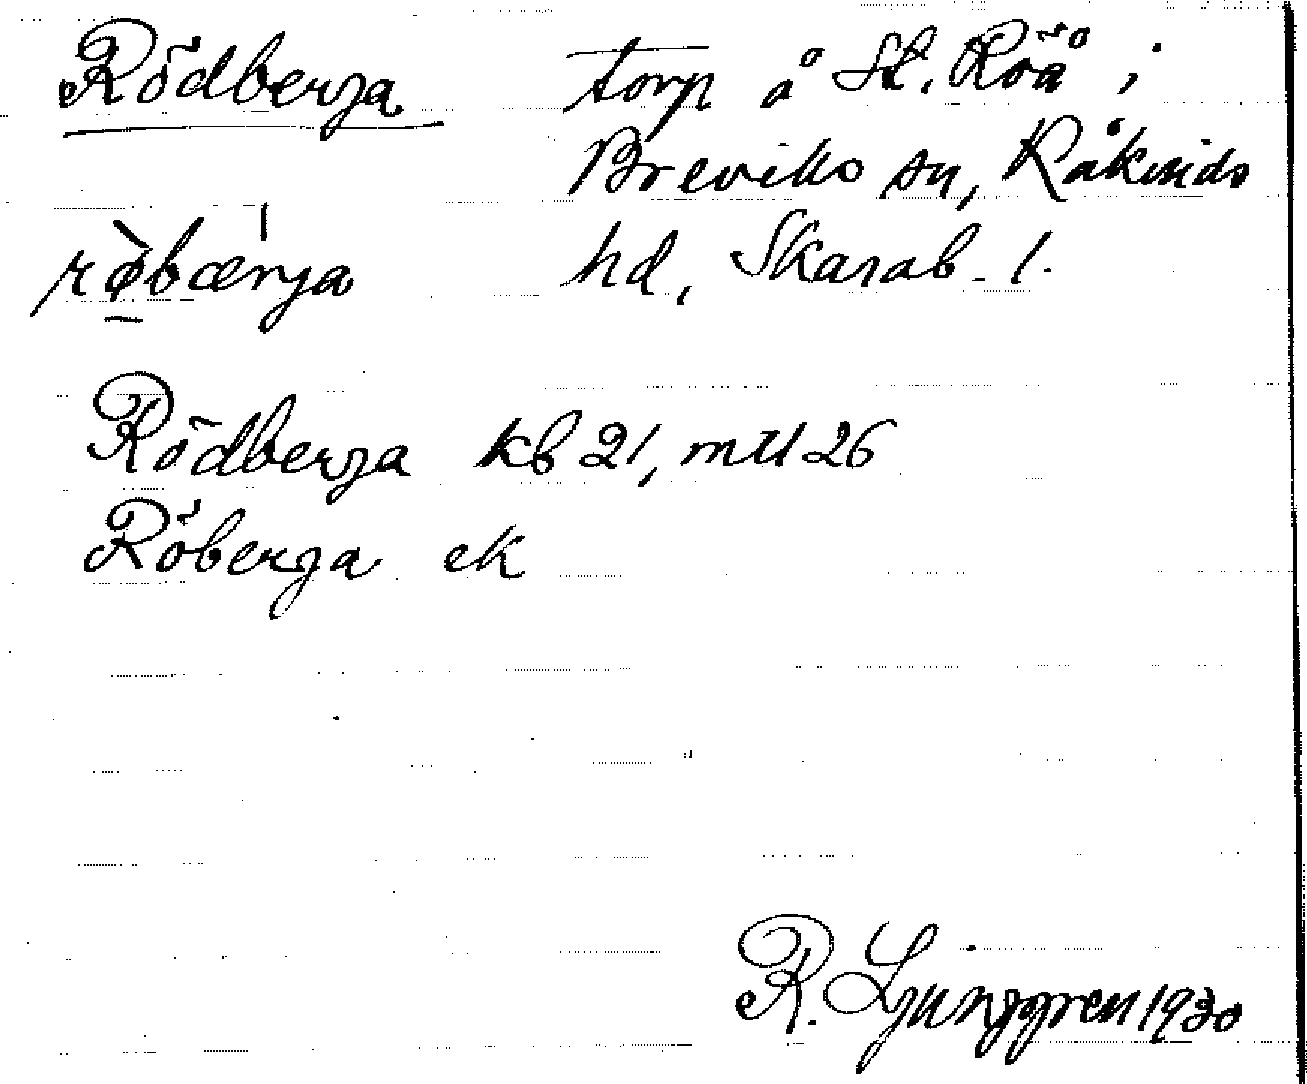 Rödberga torp å St. Röå i
Breviks sn, Råkinds
røbærja hd, Skarab. l.
Rödberga kb 21, mtl 26
Röberga ek
R. Ljunggren 1930